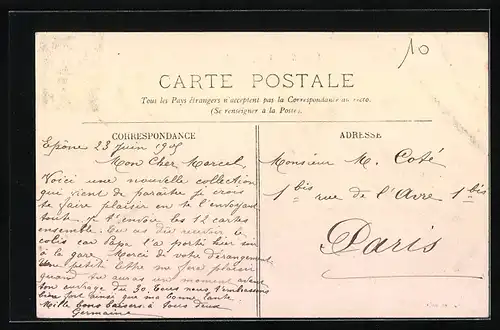 10
CARTE POSTALE
Tous les Pays étrangers n'acceptent pas la Correspondance au recto.
(Se renseigner à la Poste).
CORRESPONDANCE
Epône 23 Juin 1905
Mon Cher Marcel
Voici une nouvelle collection
qui vient de paraître je crois
te faire plaisir en te l'envoyant
tout. Je t'envoie les 12 cartes
ensemble. Tu as dû recevoir le
colis car Papa l'a porté hier soir
à la gare. Merci de votre dérangement
Une petite lettre me fera plaisir
quand tu auras un moment avant
ton ouvrage du 30. Tous nous t'embrassons
bien fort ainsi que ma bonne tante.
Mille bons baisers à tous deux
Germaine
ADRESSE
Monsieur M. Coté
1 bis rue de l'Avre 1 bis
Paris